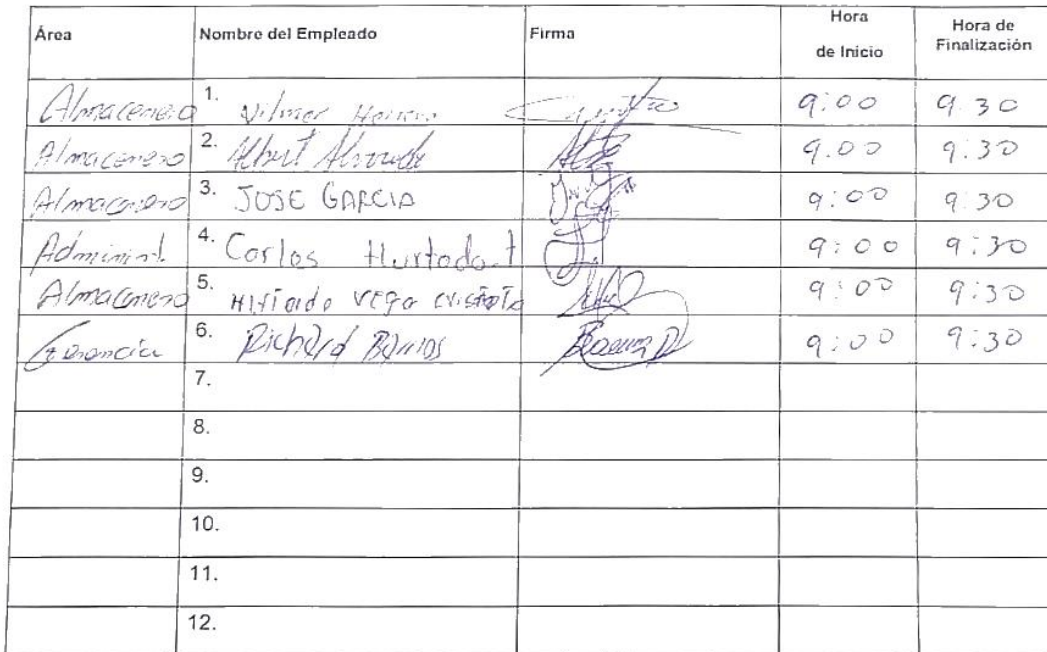 Área Nombre del Empleado Firma Hora de Inicio Hora de Finalización
Almacenero 1. Vilmer 9:00 9:30
Almacenero 2. Albert 9:00 9:30
Almacenero 3. JOSE GARCIA 9:00 9:30
Administ. 4. Carlos Hurtado.t 9:00 9:30
Almacenero 5. vega 9:00 9:30
Gerencia 6. Richard Barrios 9:00 9:30
7.
8.
9.
10.
11.
12.